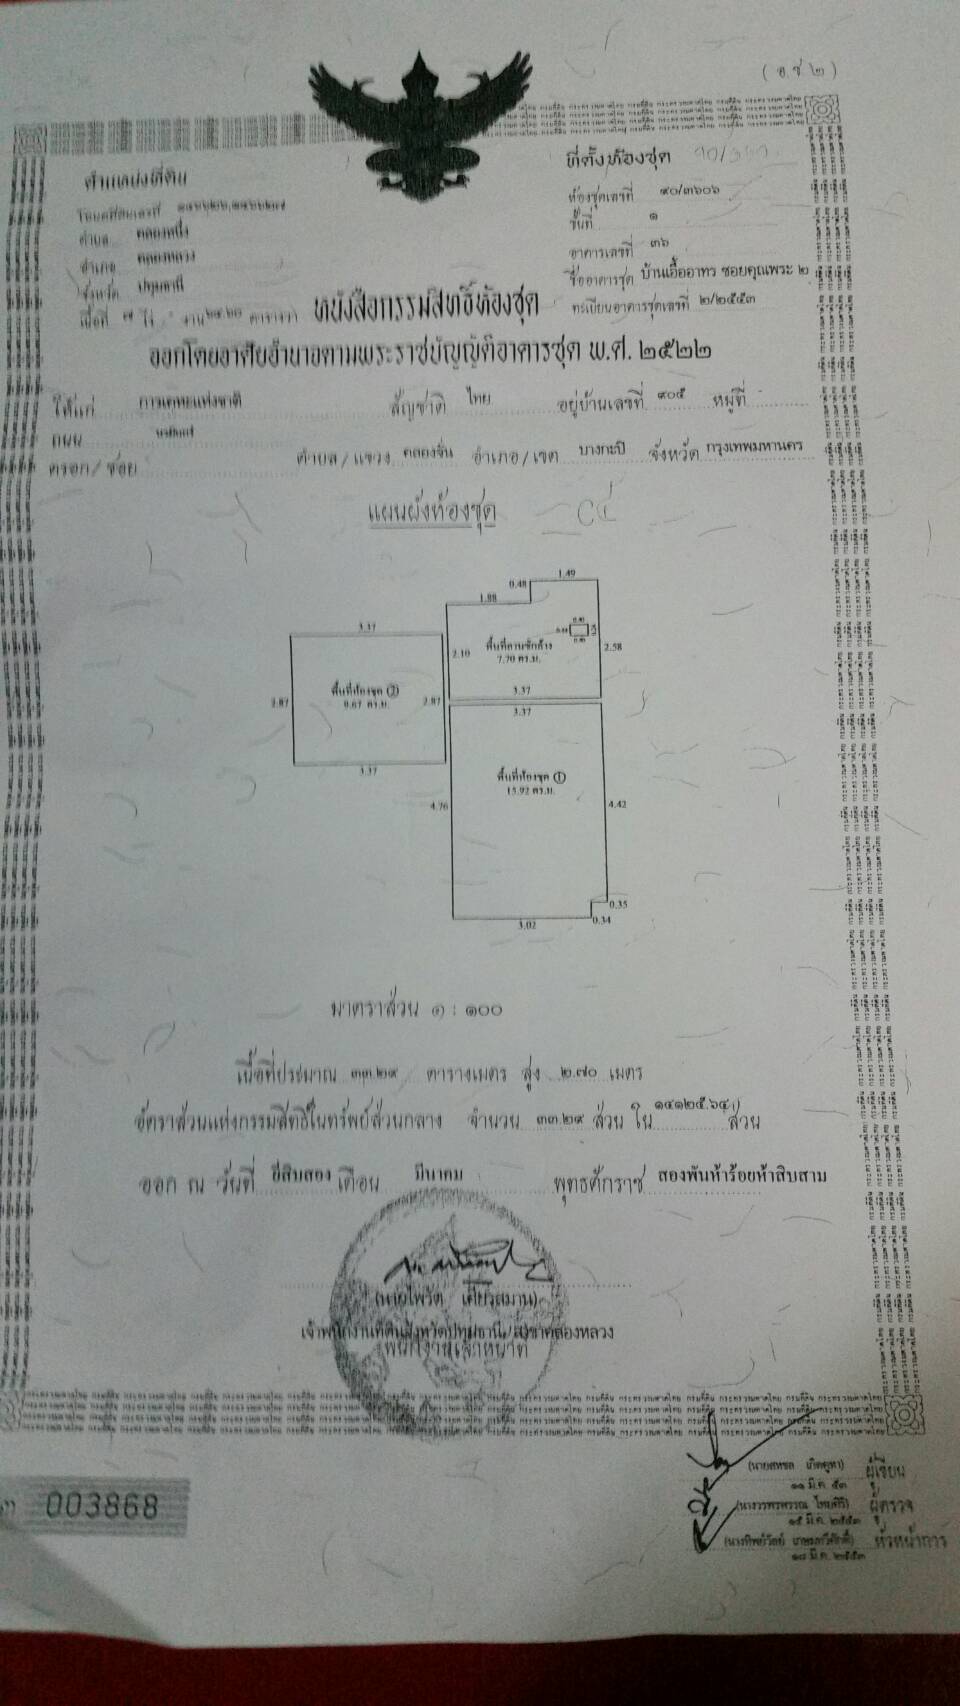 (อ.ช.๒)
ตำแหน่งที่ดิน
โฉนดที่ดินเลขที่
ตำบล คลองหนึ่ง
อำเภอ คลองหลวง
จังหวัด ปทุมธานี
เนื้อที่ ไร่ งาน ตารางวา
ที่ตั้งห้องชุด
ห้องชุดเลขที่ ๙๐/๓๖๐๖
ชั้นที่ ๑
อาคารเลขที่ ๓๖
ชื่ออาคารชุด บ้านเอื้ออาทร ซอยคุณพระ ๒
ทะเบียนอาคารชุดเลขที่ ๒/๒๕๕๓
หนังสือกรรมสิทธิ์ห้องชุด
ออกโดยอาศัยอำนาจตามพระราชบัญญัติอาคารชุด พ.ศ. ๒๕๒๒
ให้แก่ การเคหะแห่งชาติ สัญชาติ ไทย อยู่บ้านเลขที่ ๙๐๕ หมู่ที่
ถนน นวมินทร์
ตรอก/ซอย ตำบล/แขวง คลองจั่น อำเภอ/เขต บางกะปิ จังหวัด กรุงเทพมหานคร
แผนผังห้องชุด
1.49
0.48
1.88
3.37
พื้นที่ลานซักล้าง
7.70 ตร.ม.
2.10
2.58
3.37
พื้นที่ห้องชุด ②
9.67 ตร.ม.
2.87
2.87
3.37
3.37
พื้นที่ห้องชุด ①
15.92 ตร.ม.
4.76
4.42
0.35
0.34
3.02
มาตราส่วน ๑ : ๑๐๐
เนื้อที่ประมาณ ๓๓.๒๙ ตารางเมตร สูง ๒.๗๐ เมตร
อัตราส่วนแห่งกรรมสิทธิ์ในทรัพย์ส่วนกลาง จำนวน ๓๓.๒๙ ส่วน ใน ๑๔๑๒๕.๖๔ ส่วน
ออก ณ วันที่ ยี่สิบสอง เดือน มีนาคม พุทธศักราช สองพันห้าร้อยห้าสิบสาม
เจ้าพนักงานที่ดินจังหวัดปทุมธานี สาขาคลองหลวง
พนักงานเจ้าหน้าที่
003868
ผู้เขียน
๑๑ มี.ค. ๕๓
ผู้ตรวจ
๑๕ มี.ค. ๒๕๕๓
หัวหน้าการ
๑๘ มี.ค. ๒๕๕๓